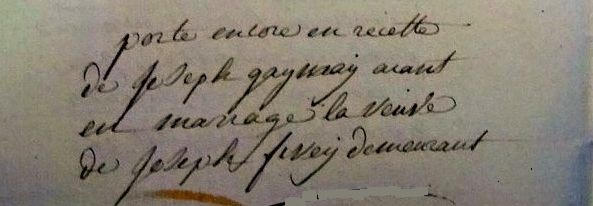 porte encore en recette
de Joseph gaymay aiant
en mariage la veuve
de Joseph frvey demeurant